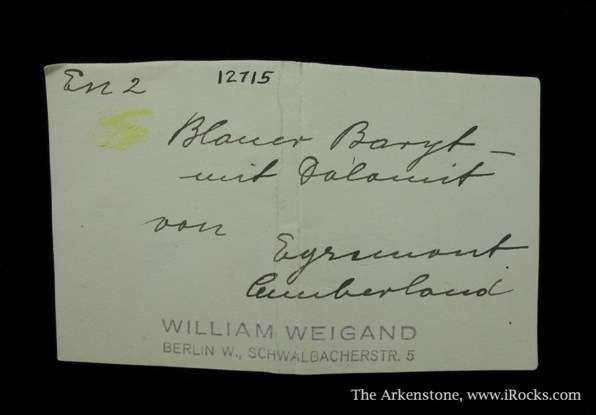 En 2 12715
Blauer Baryt –
mit Dolomit
von
Egremont
Cumberland
WILLIAM WEIGAND
BERLIN W., SCHWALBACHERSTR. 5
The Arkenstone, www.iRocks.com